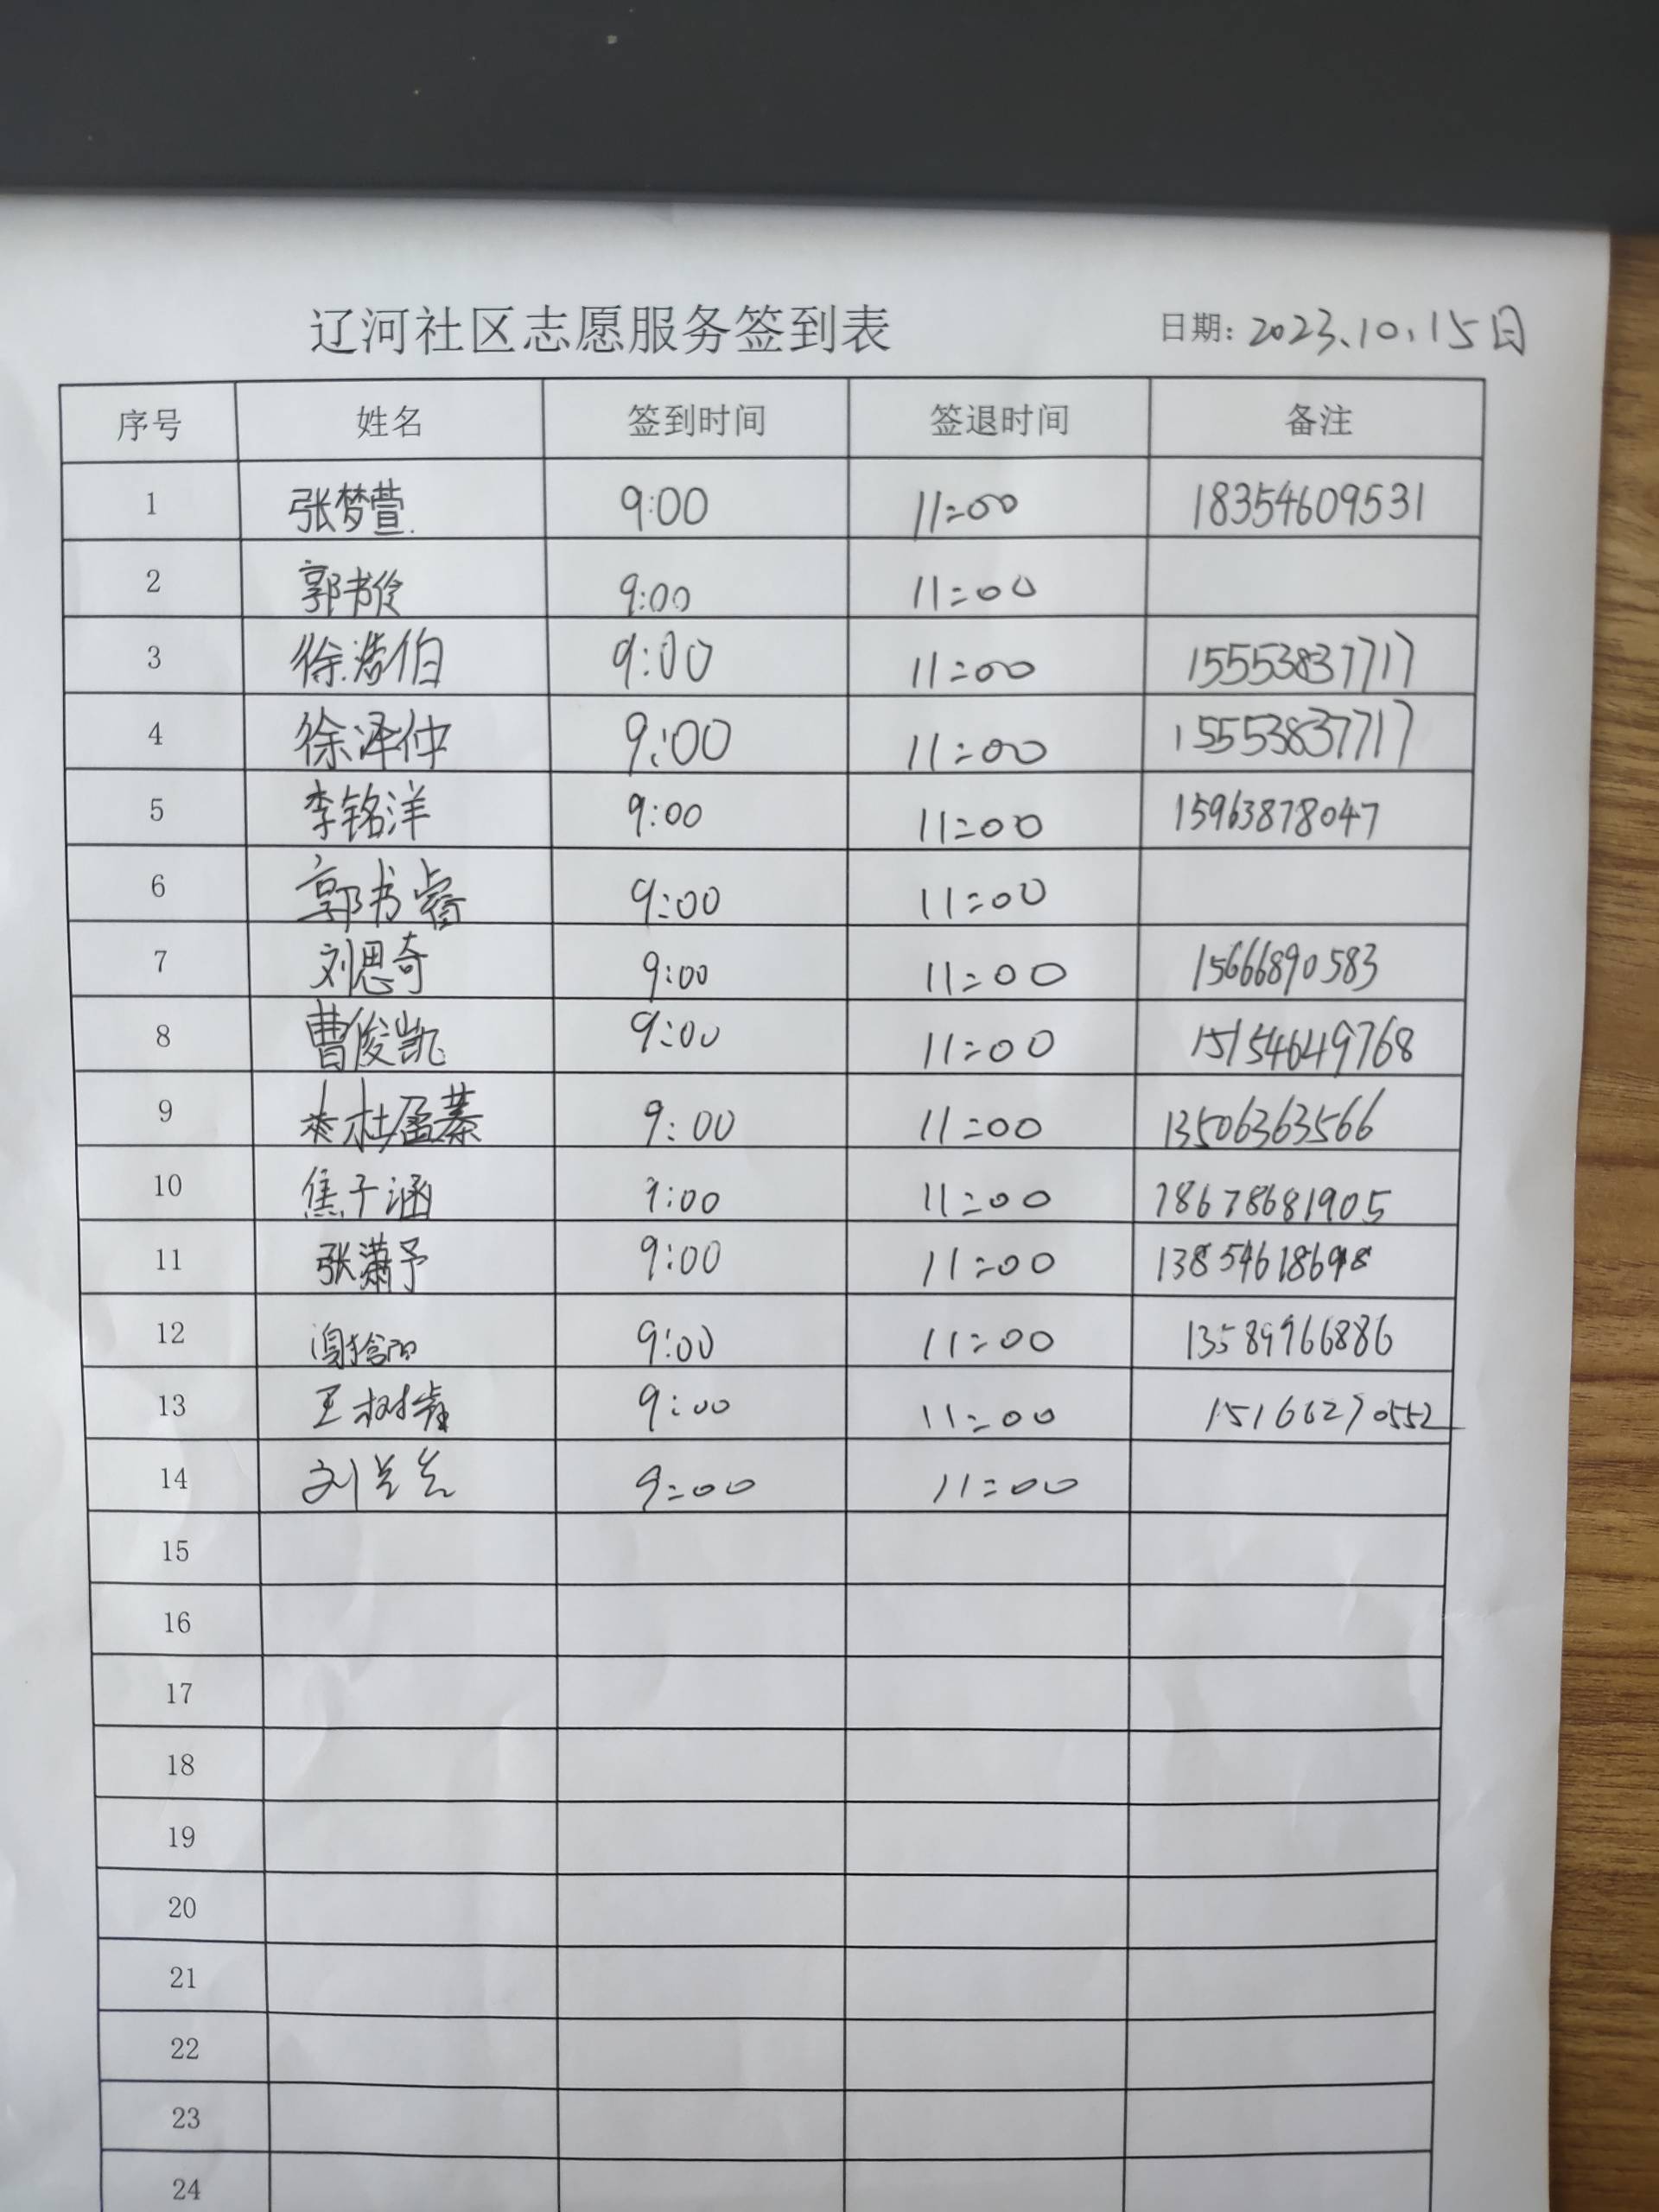 辽河社区志愿服务签到表 日期: 2023.10.15日
序号 姓名 签到时间 签退时间 备注
1 张梦萱 9:00 11:00 18354609531
2 郭书伶 9:00 11:00
3 徐浩伯 9:00 11:00 15553837717
4 徐泽仲 9:00 11:00 15553837717
5 李铭洋 9:00 11:00 15963878047
6 郭书睿 9:00 11:00
7 刘思奇 9:00 11:00 15666890583
8 曹俊凯 9:00 11:00 15154649768
9 杜盈蓁 9:00 11:00 13506363566
10 焦子涵 9:00 11:00 18678681905
11 张潇予 9:00 11:00 13854618698
12 9:00 11:00 13589966886
13 王树 9:00 11:00 15166270552
14 刘 9:00 11:00
15
16
17
18
19
20
21
22
23
24